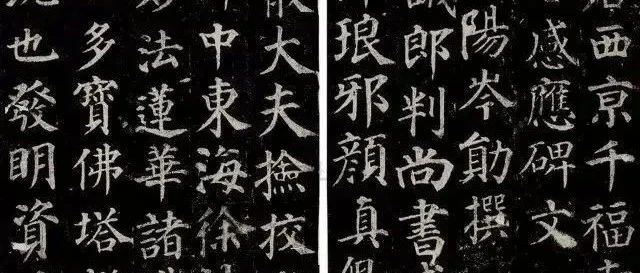 西亰千福
感應碑文
陽岑勛撰
郎判尚書
琅邪顏真
大夫撿校
中東海徐
法蓮華諸
多寶佛塔
也發明資